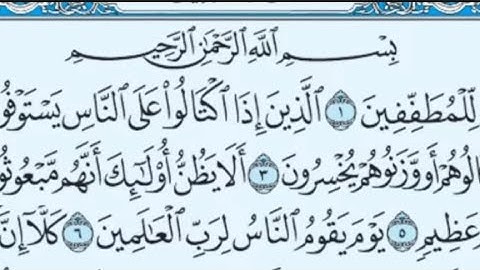 بِسْمِ اللَّهِ الرَّحْمَٰنِ الرَّحِيمِ
لِّلْمُطَفِّفِينَ ١ الَّذِينَ إِذَا اكْتَالُوا عَلَى النَّاسِ يَسْتَوْفُو
الُوهُمْ أَو وَّزَنُوهُمْ يُخْسِرُونَ ٣ أَلَا يَظُنُّ أُولَٰئِكَ أَنَّهُم مَّبْعُوثُو
عَظِيمٍ ٥ يَوْمَ يَقُومُ النَّاسُ لِرَبِّ الْعَالَمِينَ ٦ كَلَّا إِنَّ